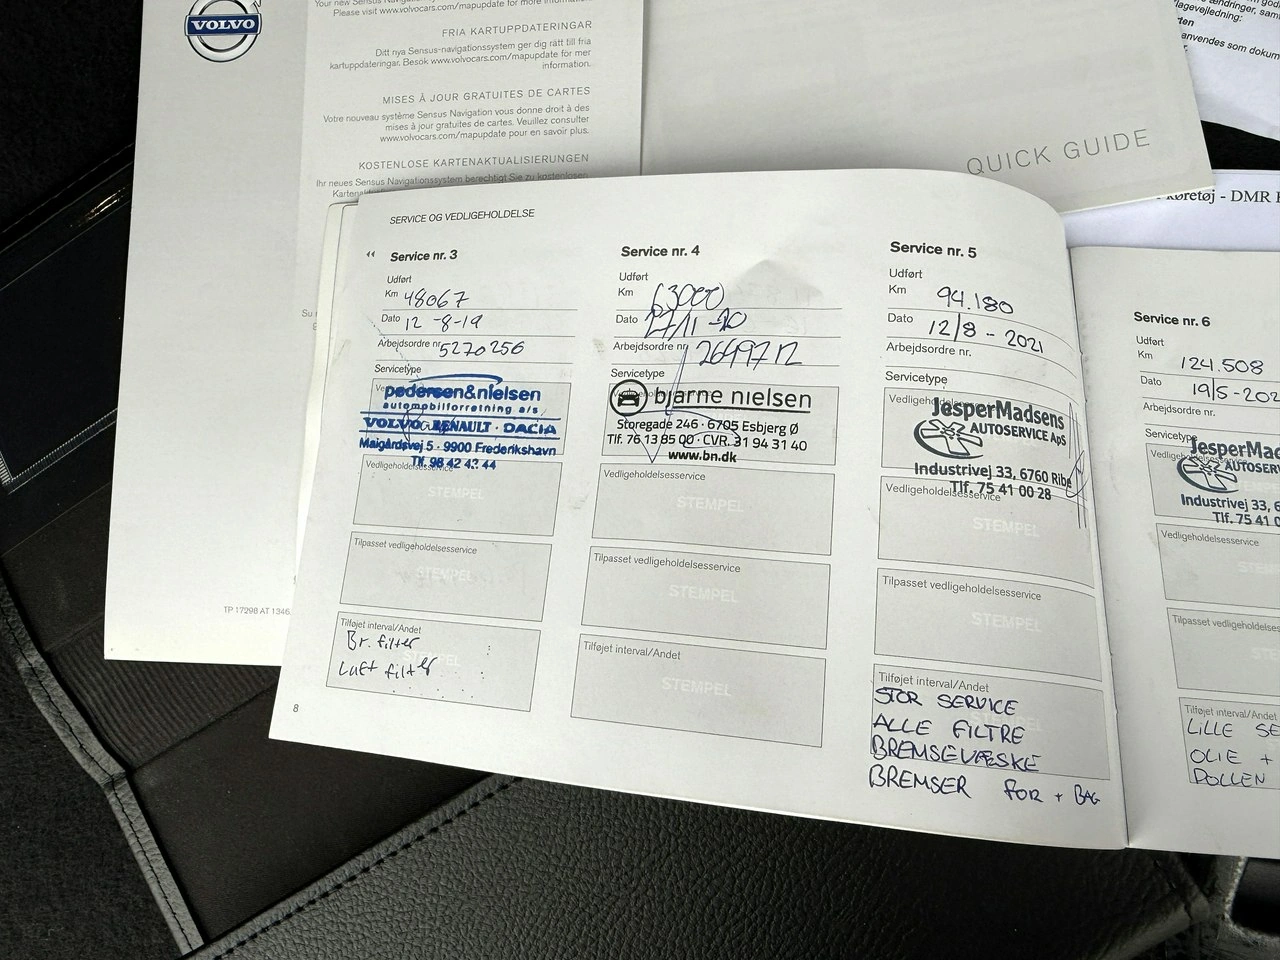 VOLVO
Please visit www.volvocars.com/mapupdate for more information.
FRIA KARTUPPDATERINGAR
Ditt nya Sensus-navigationssystem ger dig rätt till fria
kartuppdateringar. Besök www.volvocars.com/mapupdate för mer
information.
MISES À JOUR GRATUITES DE CARTES
Votre nouveau système Sensus Navigation vous donne droit à des
mises à jour gratuites de cartes. Veuillez consulter
www.volvocars.com/mapupdate pour en savoir plus.
KOSTENLOSE KARTENAKTUALISIERUNGEN
Ihr neues Sensus Navigationssystem berechtigt Sie zu kostenlosen
TP 17298 AT 1346
QUICK GUIDE
ændringer, sam
lagevejledning:
anvendes som dokum
køretøj - DMR
SERVICE OG VEDLIGEHOLDELSE
Service nr. 3
Udført
Km 48067
Dato 12-8-19
Arbejdsordre nr. 5270256
Servicetype
pedersen&nielsen
automobilforretning a/s
VOLVO · RENAULT · DACIA
Maigårdsvej 5 · 9900 Frederikshavn
Tlf. 98 42 43 44
Vedligeholdelsesservice
STEMPEL
Tilpasset vedligeholdelsesservice
STEMPEL
Tilføjet interval/Andet
Br. filter
Luft filter
8
Service nr. 4
Udført
Km 63000
Dato 27/11-20
Arbejdsordre nr.
Servicetype
bjarne nielsen
Storegade 246 · 6705 Esbjerg Ø
Tlf. 76 13 85 00 · CVR. 31 94 31 40
www.bn.dk
Vedligeholdelsesservice
STEMPEL
Tilpasset vedligeholdelsesservice
STEMPEL
Tilføjet interval/Andet
STEMPEL
Service nr. 5
Udført
Km 94.180
Dato 12/8 - 2021
Arbejdsordre nr.
Servicetype
JesperMadsens
AUTOSERVICE ApS
Industrivej 33, 6760 Ribe
Tlf. 75 41 00 28
Vedligeholdelsesservice
STEMPEL
Tilpasset vedligeholdelsesservice
STEMPEL
Tilføjet interval/Andet
STOR SERVICE
ALLE FILTRE
BREMSEVÆSKE
BREMSER FOR + BAG
Service nr. 6
Udført
Km 124.508
Dato 19/5-202
Arbejdsordre nr.
Servicetype
JesperMad
AUTOSER
Industrivej 33, 6
Tlf. 75 41 0
Vedligeholdelsesservice
Tilpasset vedligeholdelses
Tilføjet interval/Andet
LILLE SE
OLIE +
POLLEN